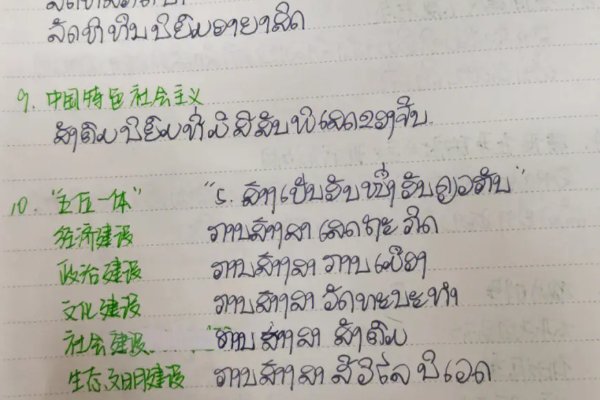 ລັດທິທຶນນິຍົມອາຍາສິດ
9. 中国特色社会主义
ສັງຄົມນິຍົມທີ່ມີສີສັນພິເສດຂອງຈີນ.
10. "五位一体" "5 ສ້າງເປັນອັນໜຶ່ງອັນດຽວກັນ"
经济建设 ການສ້າງສາ ເສດຖະກິດ
政治建设 ການສ້າງສາ ການເມືອງ
文化建设 ການສ້າງສາ ວັດທະນະທຳ
社会建设 ການສ້າງສາ ສັງຄົມ
生态文明建设 ການສ້າງສາ ສີວິໄລ ນິເວດ